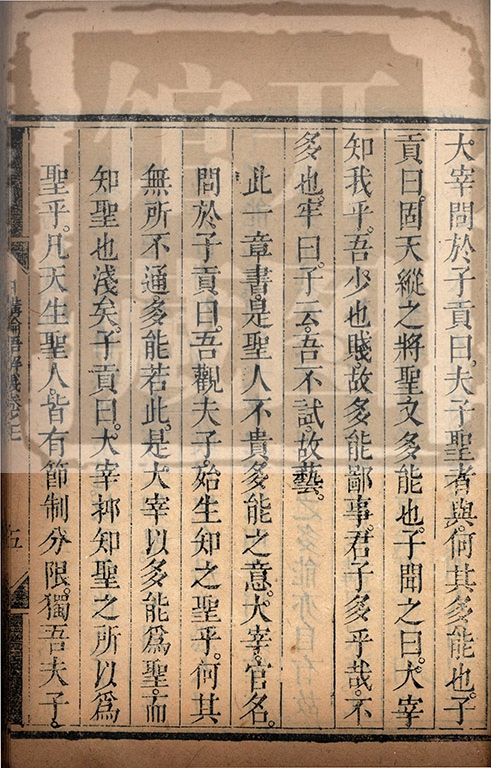 大宰問於子貢曰。夫子聖者與。何其多能也。子
貢曰。固天縱之將聖。又多能也。子聞之曰。大宰
知我乎。吾少也賤。故多能鄙事。君子多乎哉。不
多也。牢曰。子云。吾不試。故藝。
此一章書。是聖人不貴多能之意。大宰。官名。
問於子貢曰。吾觀夫子。始生知之聖乎。何其
無所不通。多能若此。是大宰以多能爲聖。而
知聖也淺矣。子貢曰。大宰抑知聖之所以爲
聖乎。凡天生聖人。皆有節制分限。獨吾夫子。
五